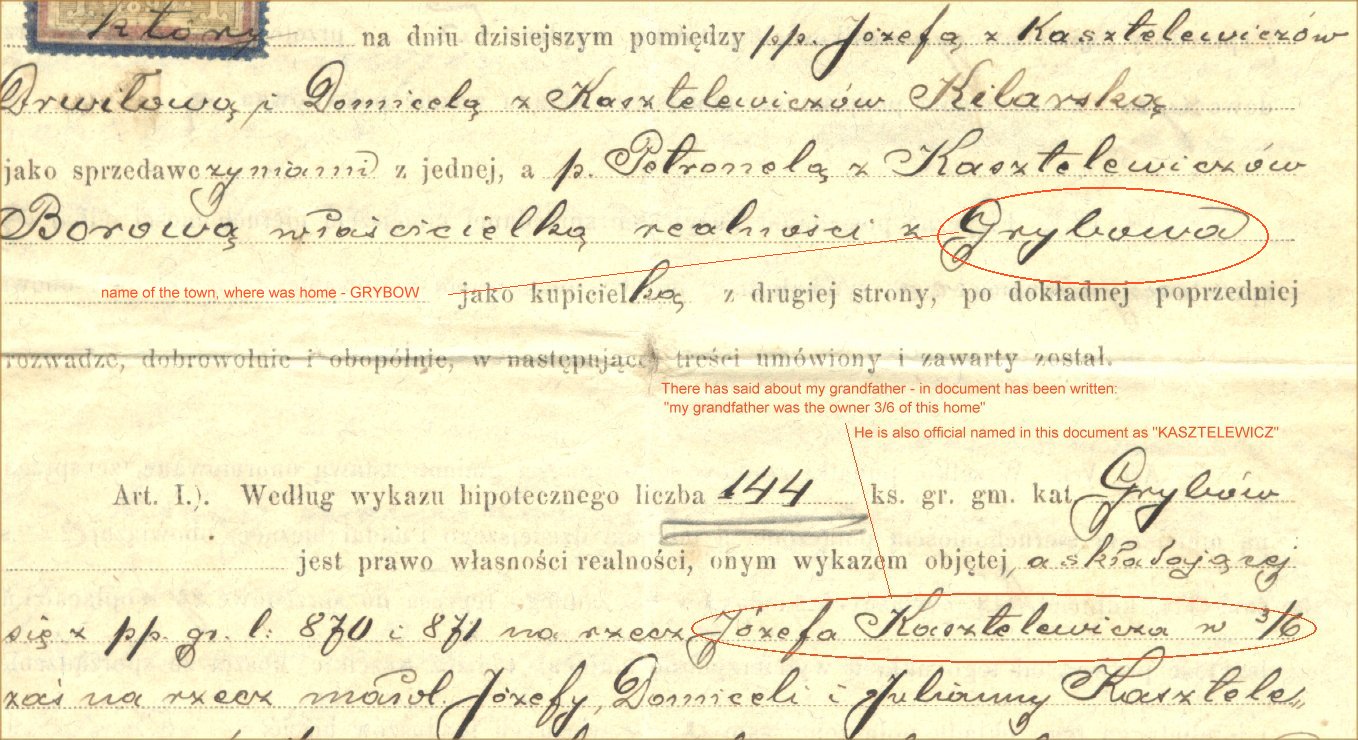 który na dniu dzisiejszym pomiędzy pp. Józefą z Kasztelewiczów
Drwilową i Domicelą z Kasztelewiczów Kilarską
jako sprzedawczyniami z jednej, a p. Petronelą z Kasztelewiczów
Borową właścicielką realności z Grybowa
name of the town, where was home - GRYBOW
jako kupicielką z drugiej strony, po dokładnej poprzedniej
rozwadze, dobrowolnie i obopólnie, w następującej treści umówiony i zawarty został.
There has said about my grandfather - in document has been written:
"my grandfather was the owner 3/6 of this home"
He is also official named in this document as "KASZTELEWICZ"
Art. I.). Według wykazu hipotecznego liczba 144 ks. gr. gm. kat. Grybów
jest prawo własności realności, onym wykazem objętej a składającej
się z pp. gr. l: 870 i 871 na rzecz Józefa Kasztelewicza w 3/6
zaś na rzecz małol. Józefy, Domiceli i Julianny Kasztele„